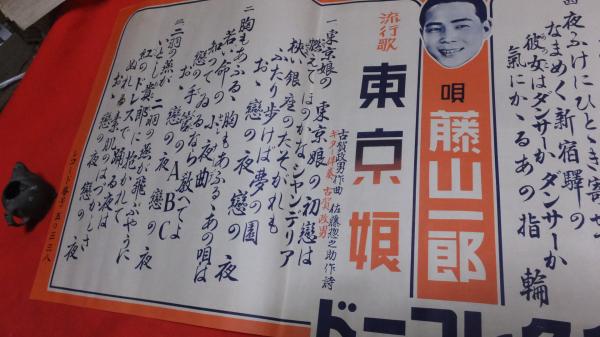 夜ふけにひととき寄せ
なまめく新宿驛の
彼女はダンサーかダンサーか
氣にかゝるあの指輪
唄 藤山一郎
流行歌
東京娘
古賀政男作曲 佐藤惣之助作詩
ギター伴奏 古賀政男
一 東京娘の 東京娘の初戀は
燃えてほのかなシャンデリア
狹い銀座のたそがれも
ふたり歩けば夢の園
おゝ戀の夜 戀の夜
二 胸もあふるゝ 胸もあふるゝあの唄は
若い命の小夜曲
戀の手管の A B C
おゝ戀の夜 戀の夜
三 二羽の燕が 二羽の燕が飛ぶやうに
紅のドレスに抱かれて
おゝ戀の夜 戀の夜
レコード番号 五〇三三八